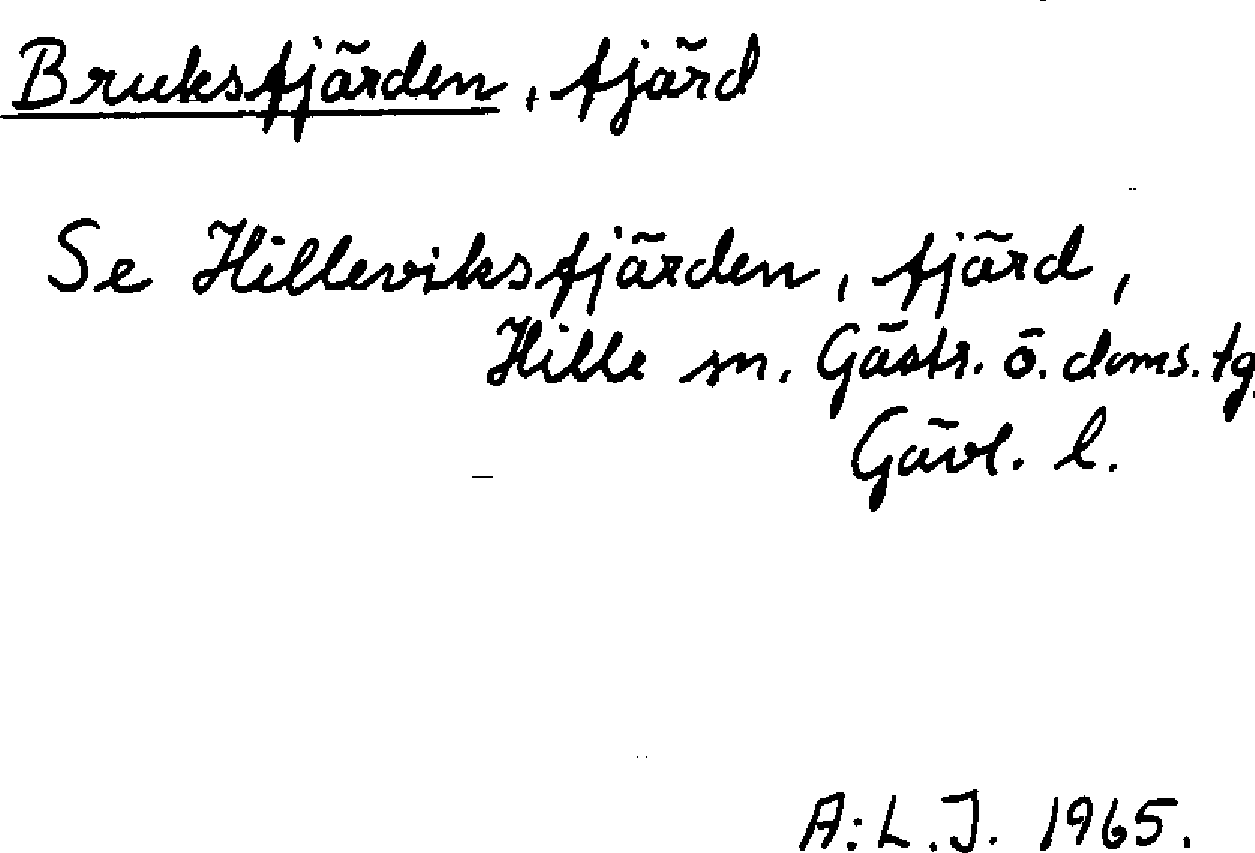 Bruksfjärden, fjärd
Se Hilleviksfjärden, fjärd,
Hille sn. Gästr. ö. doms. tg.
Gävl. l.
A:L.J. 1965.